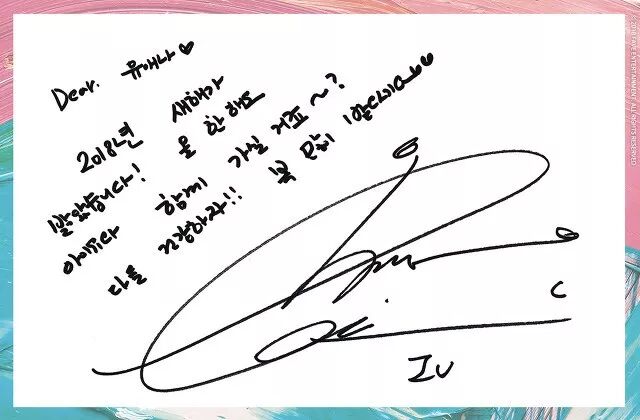 Dear. 유애나♥
2018년 새해가
밝았습니다! 올 한해도
아이유와 함께 가실 거죠~?
다들 건강하라!! 복 많이 받으세요♥♥
IU
2018 FAVE ENTERTAINMENT ALL RIGHTS RESERVED